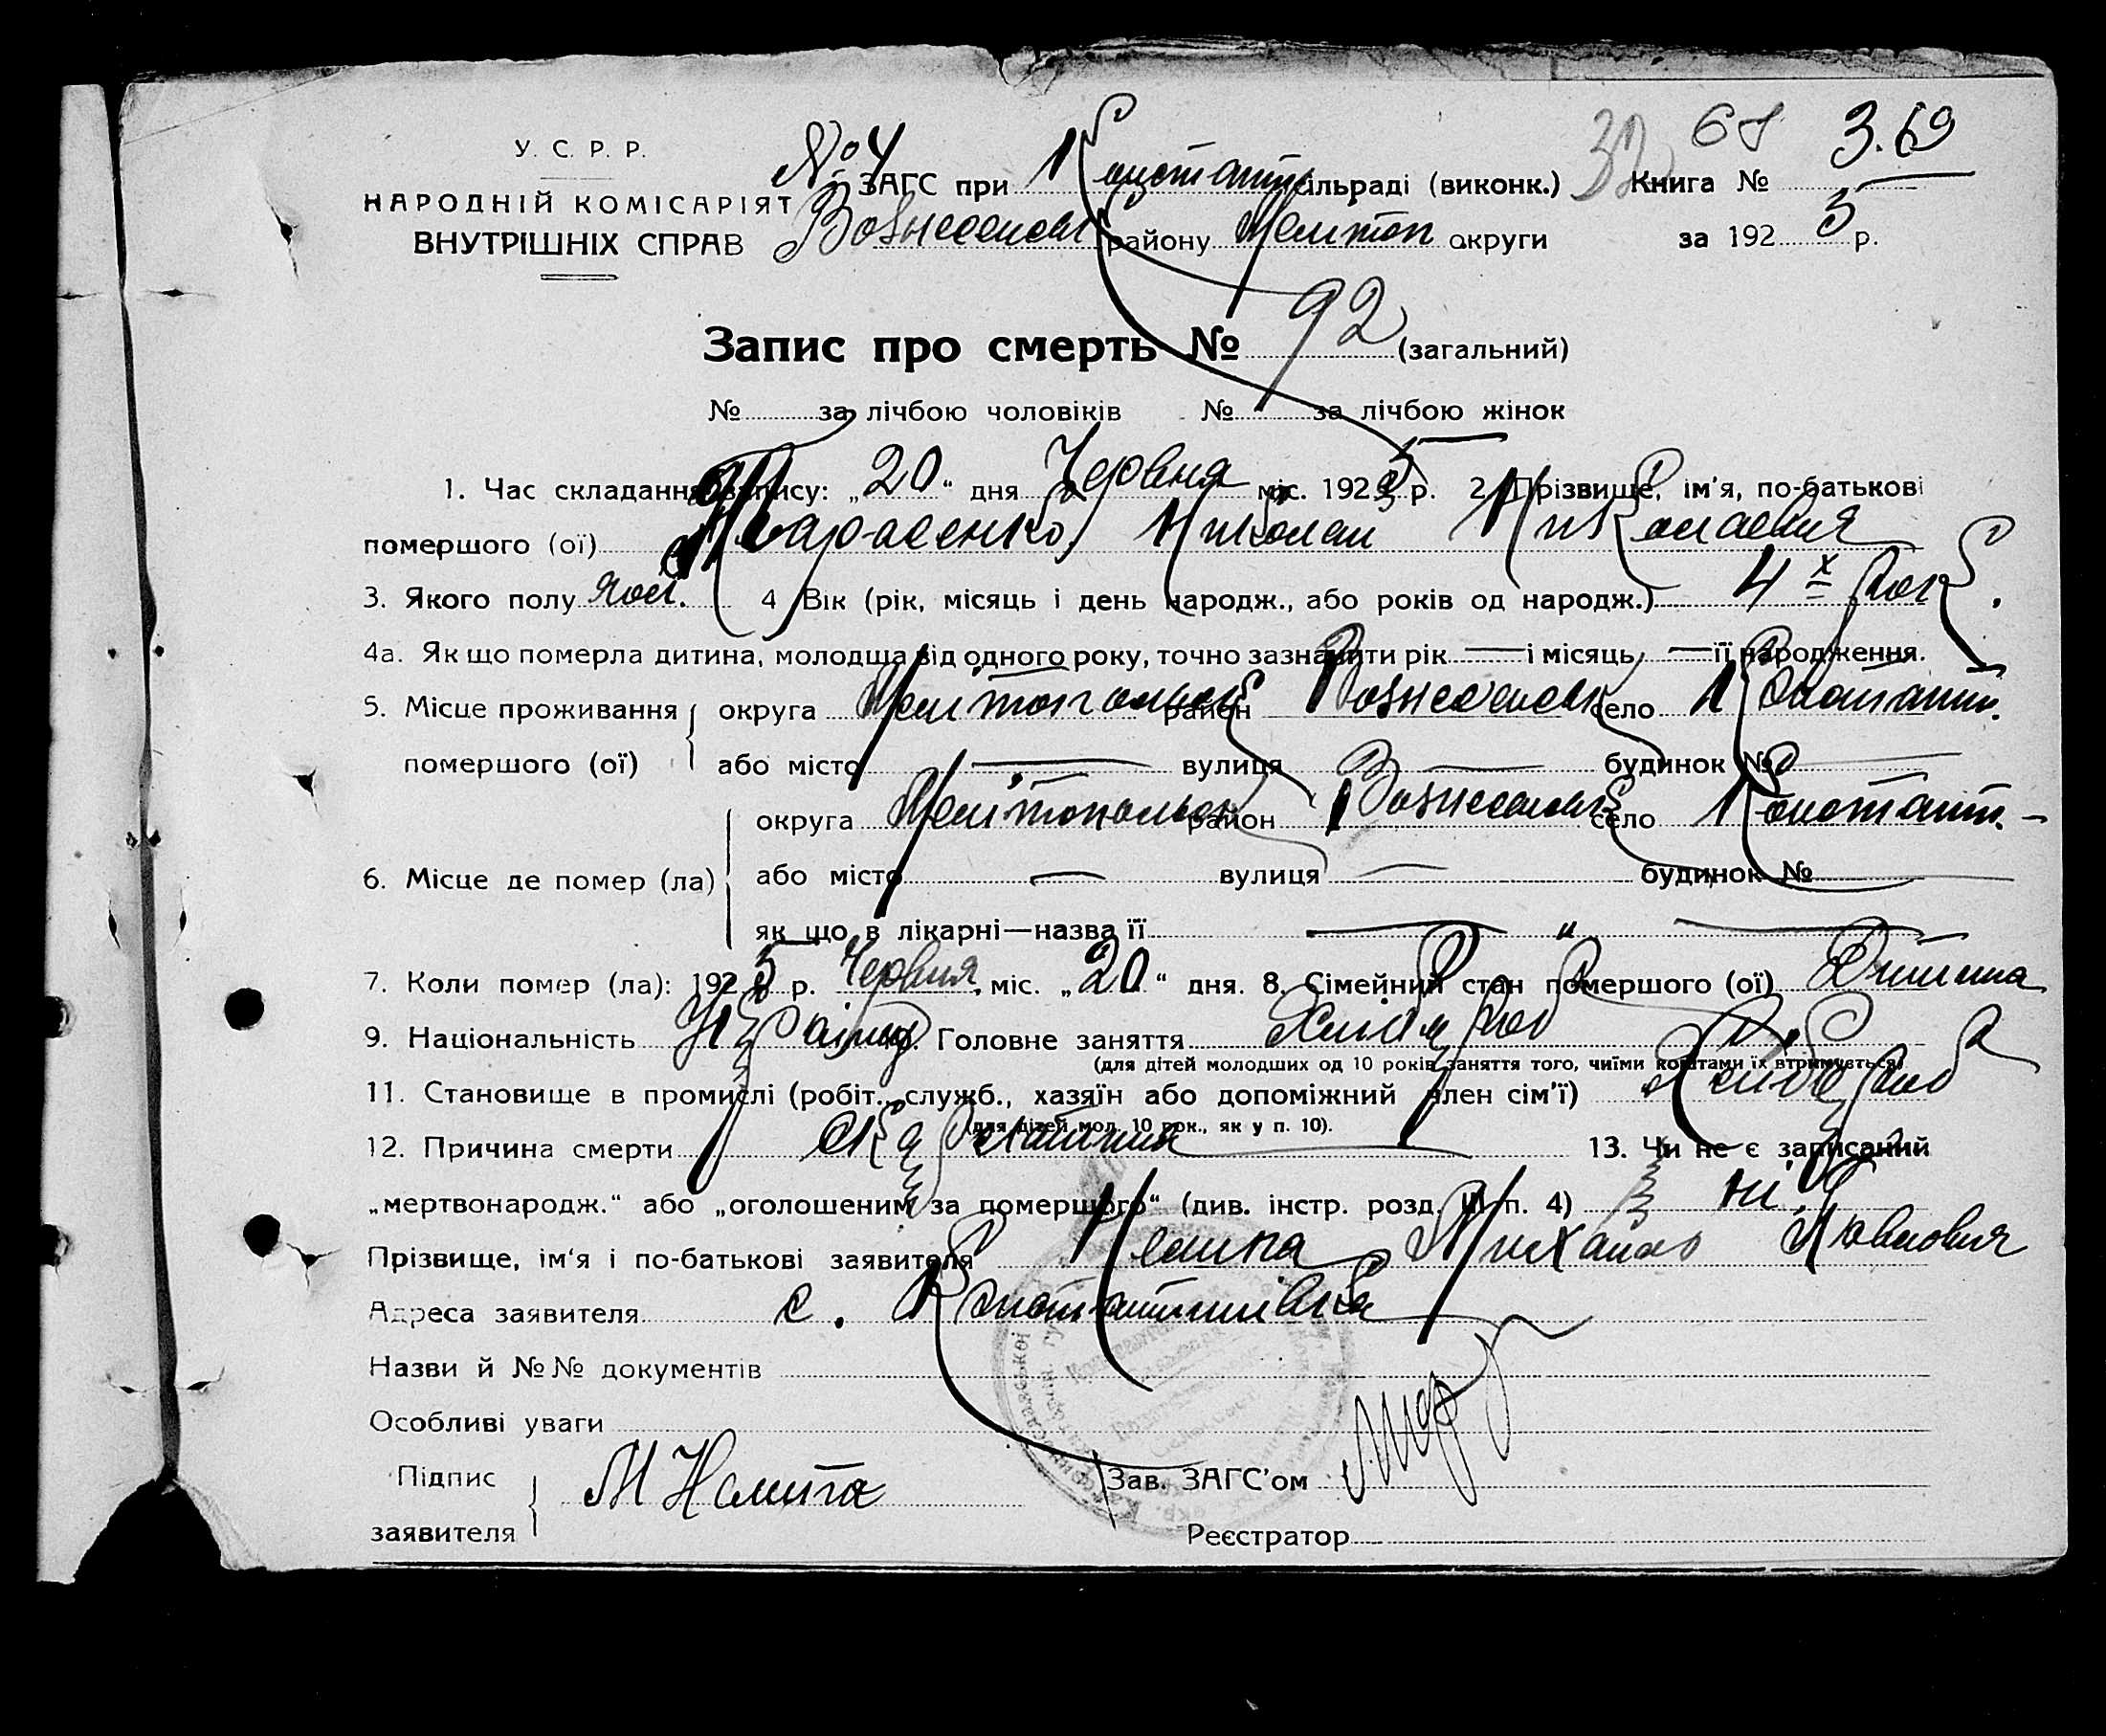 У. С. Р. Р.
НАРОДНІЙ КОМІСАРІЯТ
ВНУТРІШНІХ СПРАВ
№ 4 ЗАГС при Констант сільраді (виконк.) 32 68 Книга № 3.69
Вознесенськ району Мелітоп округи за 1925 р.
Запис про смерть № 92 (загальний)
№ за лічбою чоловіків № за лічбою жінок
1. Час складання запису: „20“ дня Червня міс. 1925 р. 2. Прізвище, ім'я, по-батькові
помершого (ої) Тарасенко Николай Николаевич
3. Якого полу чол. 4 Вік (рік, місяць і день народж., або років од народж.) 4х рок.
4а. Як що померла дитина, молодша від одного року, точно зазначити рік — і місяць — її народження.
5. Місце проживання помершого (ої) округа Мелітопольськ район Вознесенськ село Констант.
або місто — вулиця — будинок № —
6. Місце де помер (ла) округа Мелітопольськ район Вознесенськ село Констант. -
або місто — вулиця — будинок №
як що в лікарні—назва її — „ —
7. Коли помер (ла): 1925 р. Червня міс. „20“ дня. 8. Сімейний стан помершого (ої) Дитина
9. Національність Україн. 10. Головне заняття Хлібороб
(для дітей молодших од 10 років заняття того, чиїми коштами їх втримується)
11. Становище в промислі (робіт., служб., хазяїн або допоміжний член сім'ї) Хлібороб
(для дітей мол. 10 рок., як у п. 10).
12. Причина смерти Скарлатина 13. Чи не є записаний
„мертвонародж.“ або „оголошеним за помершого“ (див. інстр. розд. III п. 4) ні.
Прізвище, ім'я і по-батькові заявителя Михайло
Адреса заявителя с. Константинівка
Назви й №№ документів
Особливі уваги
Підпис заявителя М
Зав. ЗАГС'ом
Реєстратор